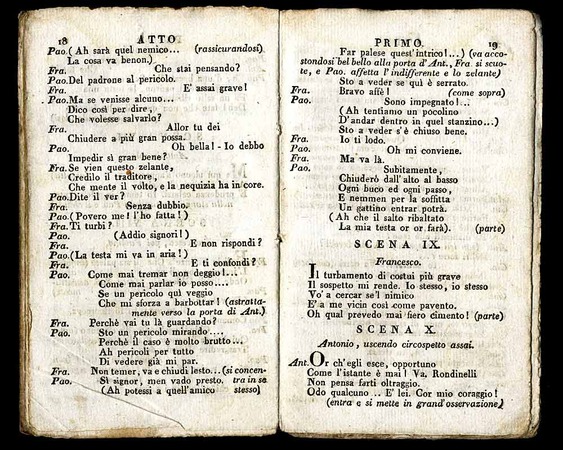 18 ATTO
Pao. ( Ah sarà quel nemico... (rassicurandosi)
La cosa va benon.)
Fra. Che stai pensando?
Pao. Del padrone al pericolo.
Fra. E' assai grave!
Pao. Ma se venisse alcuno...
Dico così per dire,
Che volesse salvarlo?
Fra. Allor tu dei
Chiudere a più gran possa.
Pao. Oh bella! - Io debbo
Impedir sì gran bene?
Fra. Se vien questo zelante,
Credilo il traditore,
Che mente il volto, e la nequizia ha in core.
Pao. Dite il ver?
Fra. Senza dubbio.
Pao. (Povero me! l'ho fatta!)
Fra. Ti turbi?
Pao. (Addio signori!)
Fra. E non rispondi?
Pao. (La testa mi va in aria!)
Fra. E ti confondi?
Pao. Come mai tremar non deggio!...
Come mai parlar io posso....
Se un pericol quì veggio
Che mi sforza a barbottar! (astratta-
mente verso la porta di Ant.)
Fra. Perchè vai tu là guardando?
Pao. Sto un pericol mirando....
Perchè il caso è molto brutto...
Ah pericoli per tutto
Di vedere già mi par.
Fra. Non temer, va e chiudi lesto...(si concen-
Pao. Sì signor, men vado presto. tra in se
(Ah potessi a quell'amico stesso)
PRIMO. 19
Far palese quest'intrico!...) (va acco-
stondosi bel bello alla porta d'Ant., Fra. si scuo-
te, e Pao. affetta l'indifferente e lo zelante)
Sto a veder se quì è serrato.
Fra. Bravo affè! (come sopra)
Pao. Sono impegnato!..
(Ah tentiamo un pocolino
D'andar dentro in quel stanzino...)
Sto a veder s'è chiuso bene.
Fra. Io ti lodo.
Pao. Oh mi conviene.
Fra. Ma va là.
Pao. Subitamente,
Chiuderò dall'alto al basso
Ogni buco ed ogni passo,
E nemmen per la soffitta
Un gattino entrar potrà.
(Ah che il salto ribaltato
La mia testa or or farà). (parte)
SCENA IX.
Francesco.
Il turbamento di costui più grave
Il sospetto mi rende. Io stesso, io stesso
Vo' a cercar se'l nimico
E' a me vicin così come pavento.
Oh qual prevedo mai fiero cimento! (parte)
SCENA X.
Antonio, uscendo circospetto assai.
Ant. Or ch'egli esce, opportuno
Come l'istante è mai! Va, Rondinelli
Non pensa farti oltraggio.
Odo qualcuno .. E' lei. Cor mio coraggio!
(entra e si mette in grand'osservazione)